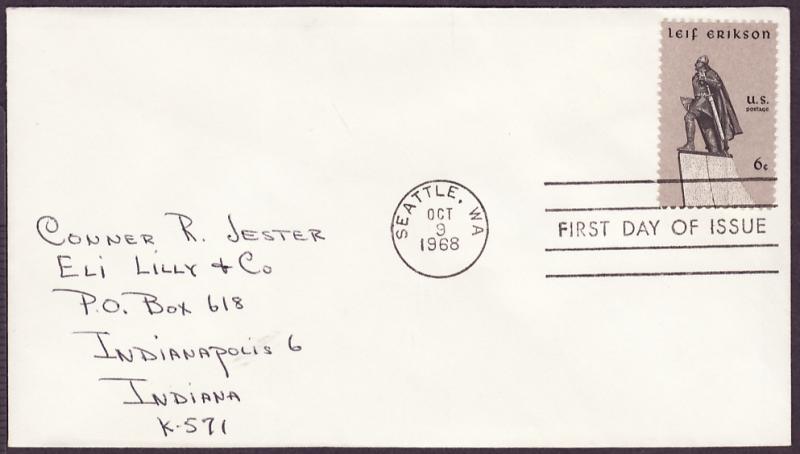 LEIF ERIKSON
U.S.
POSTAGE
6c
SEATTLE, WA
OCT
9
1968
FIRST DAY OF ISSUE
CONNER R. JESTER
ELI LILLY & CO
P.O. BOX 618
INDIANAPOLIS 6
INDIANA
K-571